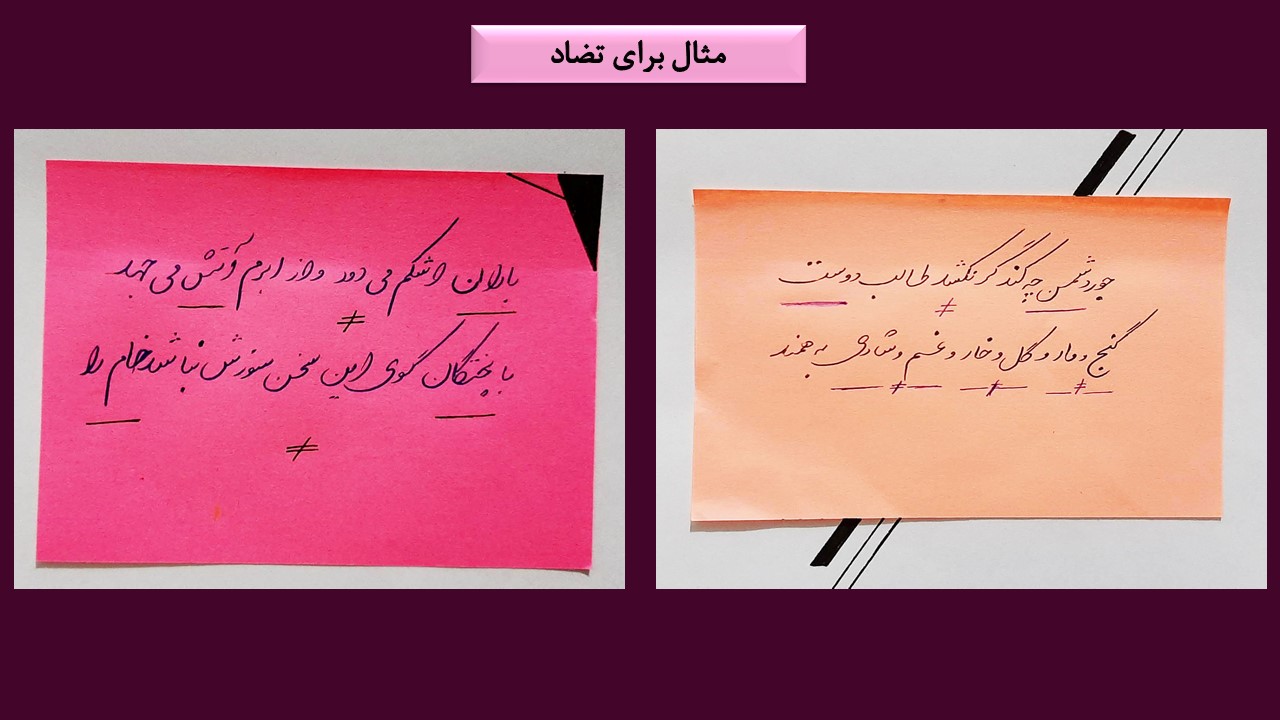 مثال برای تضاد
جور دشمن چه کند گر نکشد طالب دوست
≠
گنج و مار و گل و خار و غم و شادی به همند
≠ ≠ ≠
باران اشکم می دود و از ابرم آتش می جهد
≠
با پختگان گوی این سخن سوزش نباشد خام را
≠